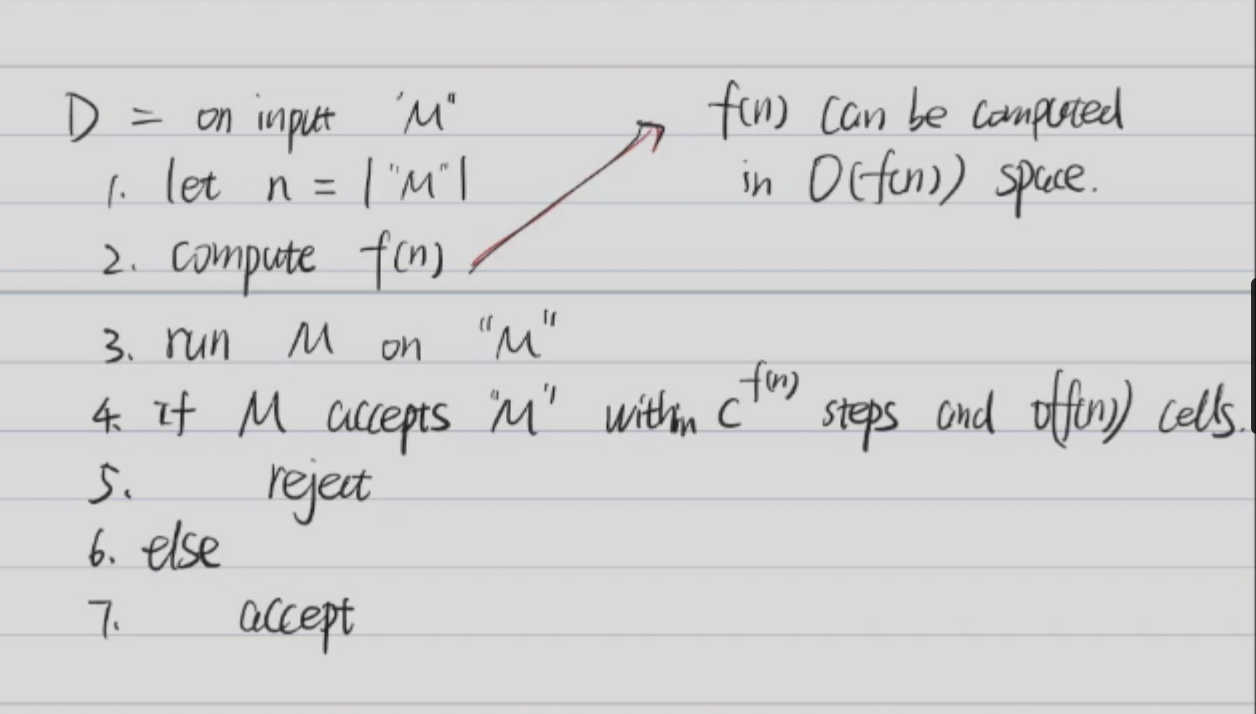 D = on input "M"
1. let n = |"M"|
2. compute f(n)
f(n) can be computed
in O(f(n)) space.
3. run M on "M"
4. If M accepts "M" within c^f(n) steps and o(f(n)) cells.
5. reject
6. else
7. accept